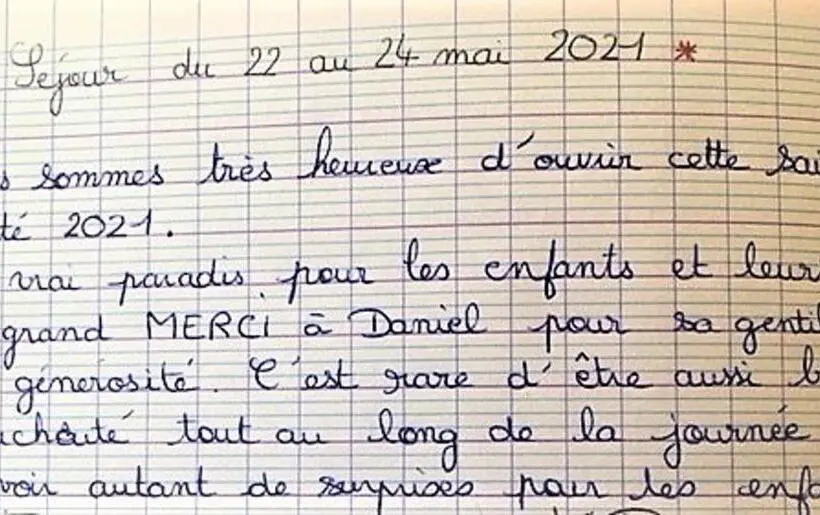 Séjour du 22 au 24 mai 2021 *
s sommes très heureux d'ouvrir cette sai
té 2021.
vrai paradis pour les enfants et leur
grand MERCI à Daniel pour sa gentil
génerosité. C'est rare d'être aussi b
chouté tout au long de la journée
voir autant de surprises pour les enfa